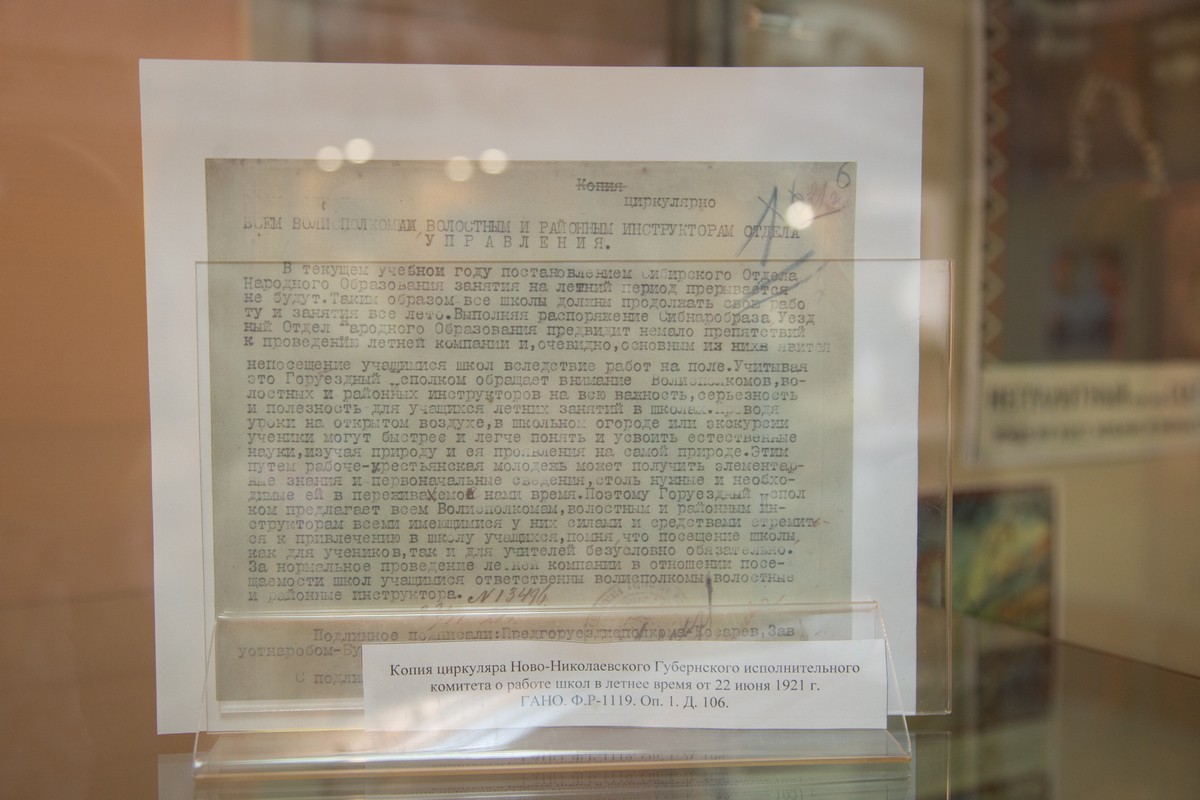 6
Копия
циркулярно
ВСЕМ ВОЛИСПОЛКОМАМ, ВОЛОСТНЫМ И РАЙОННЫМ ИНСТРУКТОРАМ ОТДЕЛА
УПРАВЛЕНИЯ.
В текущем учебном году постановлением Сибирского Отдела
Народного Образования занятия на летний период прерываться
не будут. Таким образом все школы должны продолжать свою рабо
ту и занятия все лето. Выполняя распоряжение Сибнаробраза Уезд
ный Отдел Народного Образования предвидит немало препятствий
к проведению летней компании и, очевидно, основным из них явится
непосещение учащимися школ вследствие работ на поле. Учитывая
это Горуездный сполком обращает внимание Волисполкомов, во-
лостных и районных инструкторов на всю важность, серьезность
и полезность для учащихся летних занятий в школах. Проводя
уроки на открытом воздухе, в школьном огороде или экскурсии
ученики могут быстрее и легче понять и усвоить естественные
науки, изучая природу и ея проявления на самой природе. Этим
путем рабоче-крестьянская молодежь может получить элементар-
ные знания и первоначальные сведения, столь нужные и необхо-
димые ей в переживаемой нами время. Поэтому Горуездный Испол
ком предлагает всем Волисполкомам, волостным и районным ин-
структорам всеми имеющимися у них силами и средствами стремит-
ся к привлечению в школу учащихся, помня, что посещение школы,
как для учеников, так и для учителей безусловно обязательно.
За нормальное проведение летней компании в отношении посе-
щаемости школ учащимися ответственны волисполкомы, волостные
и районные инструктора. N 13496
Подлинное подписали: Предгоруездисполкома Козарев, Зав
уотнаробом-Бу
С подлин
Копия циркуляра Ново-Николаевского Губернского исполнительного
комитета о работе школ в летнее время от 22 июня 1921 г.
ГАНО. Ф.Р-1119. Оп. 1. Д. 106.
НЕГРАМОТНЫЙ